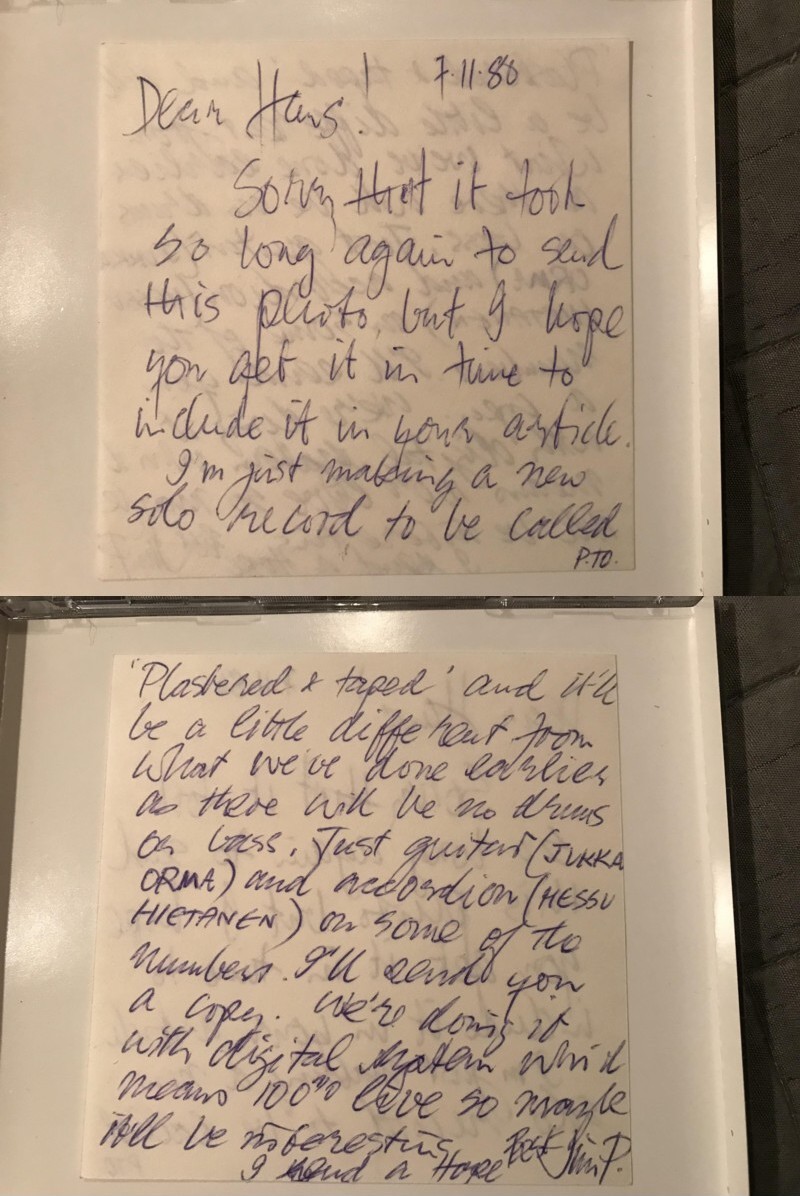 7.11.86
Dear Hans!
Sorry that it took
so long again to send
this photo, but I hope
you get it in time to
include it in your article.
I'm just making a new
solo record to be called
P.T.O.
'Plastered & taped' and it'll
be a little different from
what we've done earlier
as there will be no drums
or bass. Just guitar (JUKKA
ORMA) and accordion (HESSU
HIETANEN) on some of the
numbers. I'll send you
a copy. We're doing it
with digital system which
means 100% live so maybe
it'll be interesting
I send a Best Jim P.